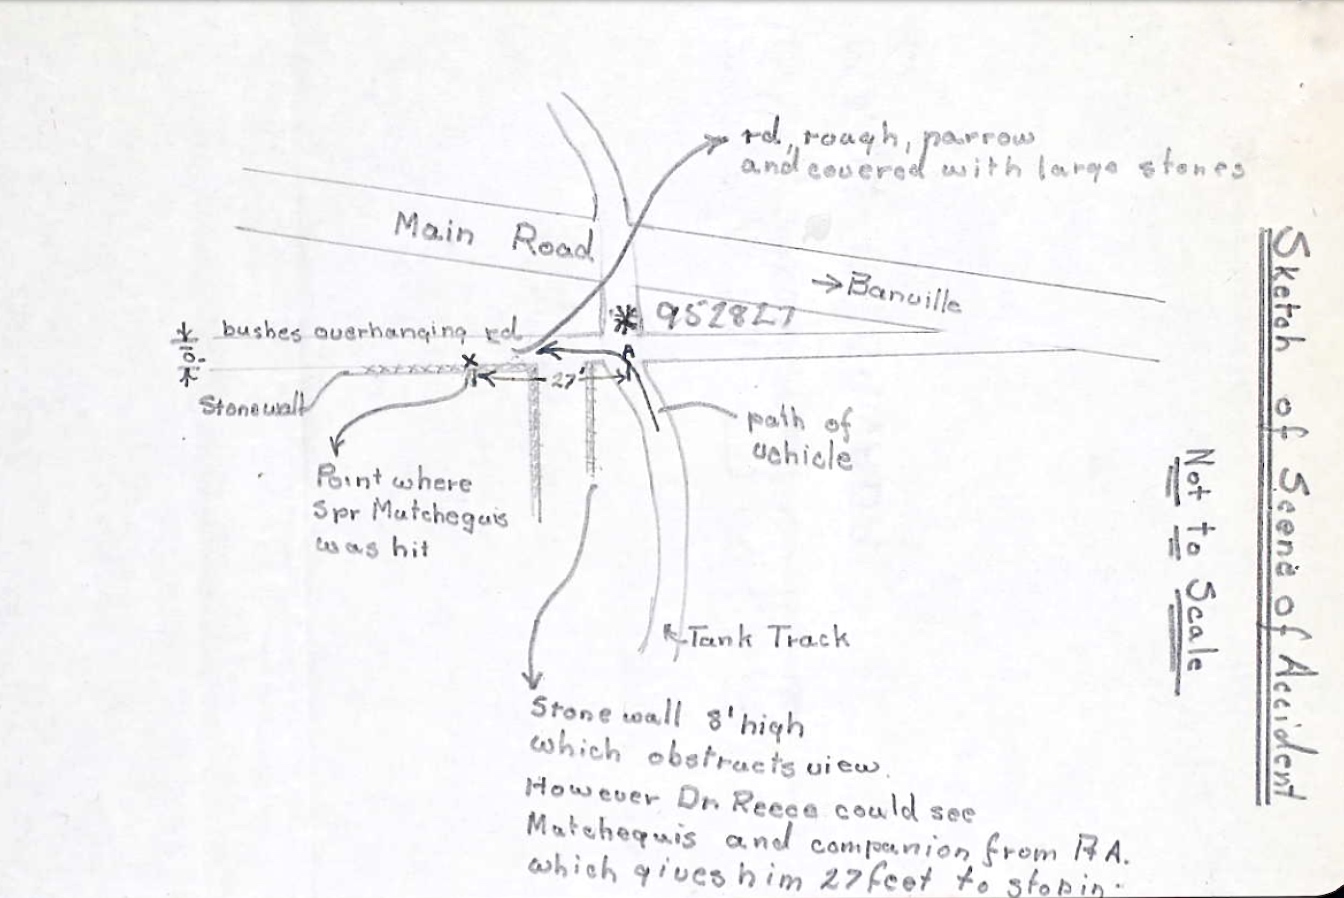 Sketch of Scene of Accident
Not to Scale
rd, rough, narrow
and covered with large stones
Main Road
→ Banville
952827
bushes overhanging rd
10'
X
A
27'
Stonewall
path of
vehicle
Point where
Spr Matchequis
was hit
Tank Track
Stone wall 8' high
which obstructs view.
However Dr Reece could see
Matchequis and companion from Pt A.
which gives him 27 feet to stop in.